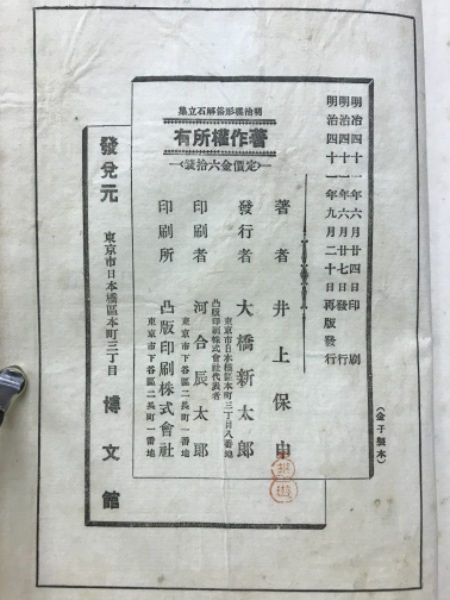 明治四十一年六月廿四日印刷
明治四十一年六月廿七日發行
明治四十一年九月二十日再版發行
(金子製本)
有所權作著
(定價金六拾錢)
著者 井上保申
發行者 大橋新太郎
東京市日本橋區本町三丁目八番地
凸版印刷株式會社代表者
印刷者 河合辰太郎
東京市下谷區二長町一番地
印刷所 凸版印刷株式會社
東京市下谷區二長町一番地
發兌元 東京市日本橋區本町三丁目 博文館